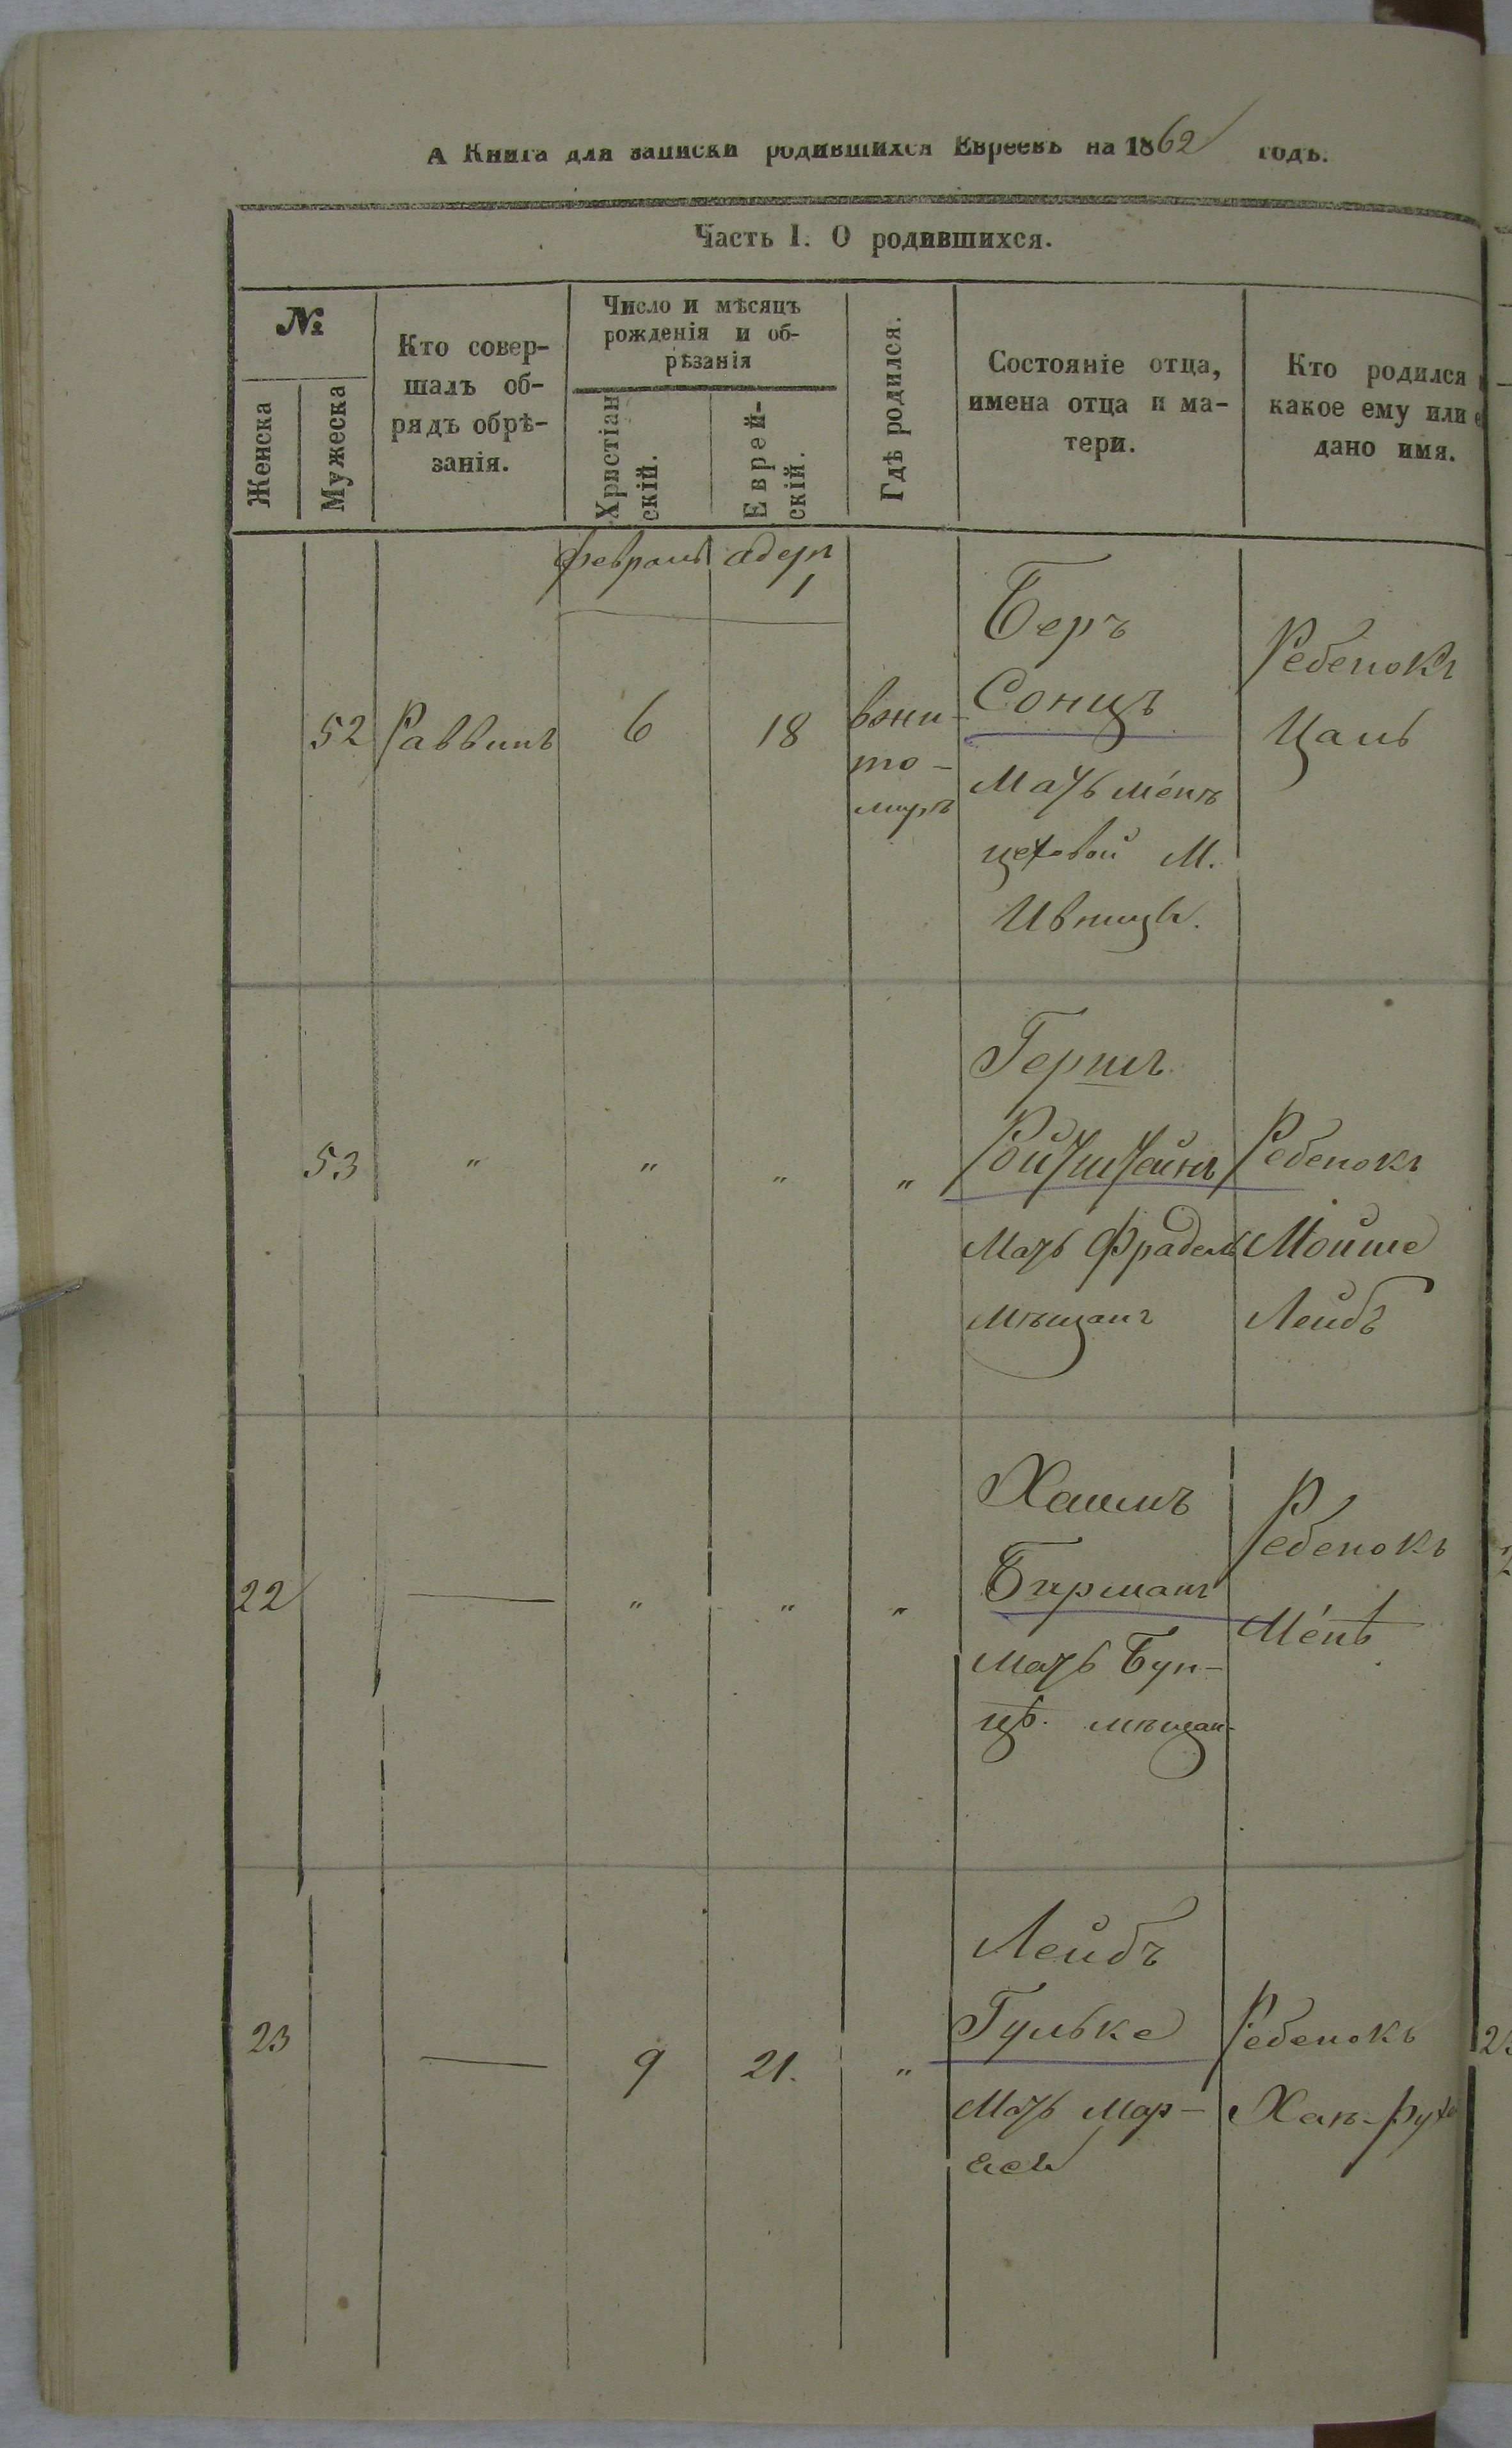 А Книга для записки родившихся Евреевъ на 1862 годъ.
Часть I. О родившихся.
№
Женска
Мужеска
Кто совер-
шалъ об-
рядъ обрѣ-
занія.
Число и мѣсяцъ
рожденія и об-
рѣзанія
Христіан
скій.
Еврей-
скій.
Гдѣ родился.
Состояніе отца,
имена отца и ма-
тери.
Кто родился
какое ему или е
дано имя.
февраль адеръ
1
52 Раввинъ 6 18
вжи-
то-
миръ
Беръ
Сонцъ
Мать менъ
цеховой М.
Ивницы.
Ребенокъ
Цаль
53 " " " "
Гершъ
Ройтштейнъ
Мать Фрадель
мѣщанъ
Ребенокъ
Мойше
Лейбъ
22 — " " "
Хаимъ
Бирманъ
Мать Бун-
цѣ. мѣщан-
Ребенокъ
Менѣ
23 — 9 21. "
Лейбъ
Гульке
Мать Мар-
Ребенокъ